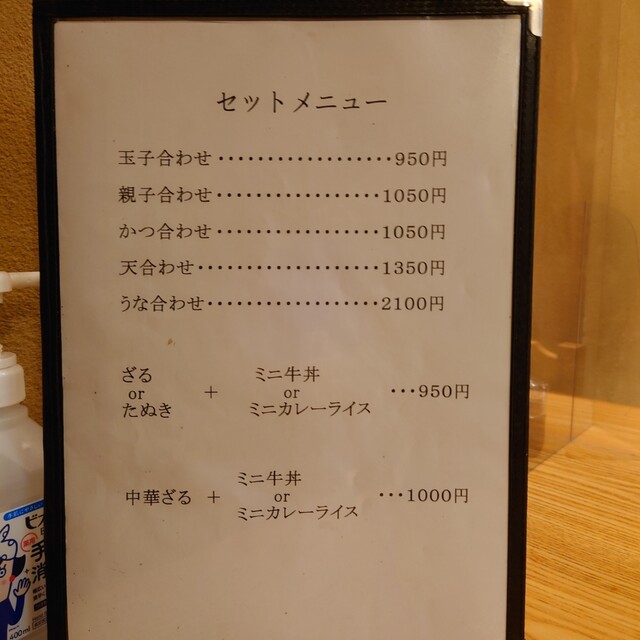 セットメニュー
玉子合わせ・・・・・・・・・・・・・・・・・・950円
親子合わせ・・・・・・・・・・・・・・・・・1050円
かつ合わせ・・・・・・・・・・・・・・・・・1050円
天合わせ・・・・・・・・・・・・・・・・・・・1350円
うな合わせ・・・・・・・・・・・・・・・・・・2100円
ざる
or
たぬき
+
ミニ牛丼
or
ミニカレーライス
・・・950円
中華ざる
+
ミニ牛丼
or
ミニカレーライス
・・・1000円
手
消
400ml